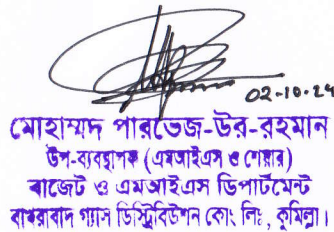 02-10-24
মোহাম্মদ পারভেজ-উর-রহমান
উপ-ব্যবস্থাপক (এমআইএস ও শেয়ার)
বাজেট ও এমআইএস ডিপার্টমেন্ট
বাখরাবাদ গ্যাস ডিস্ট্রিবিউশন কোং লিঃ, কুমিল্লা।